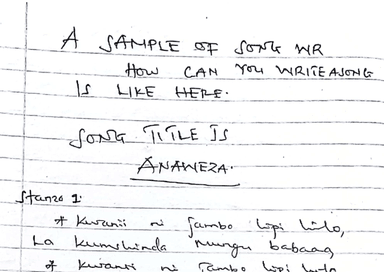 A SAMPLE OF SONG WR
HOW CAN YOU WRITE A SONG
IS LIKE HERE.
SONG TITLE IS
ANAWEZA.
Stanza 1:
* Kwanii ni Jambo lipi hilo,
La kumshinda mungu babaaa
* Kwanii ni Jambo lipi hilo